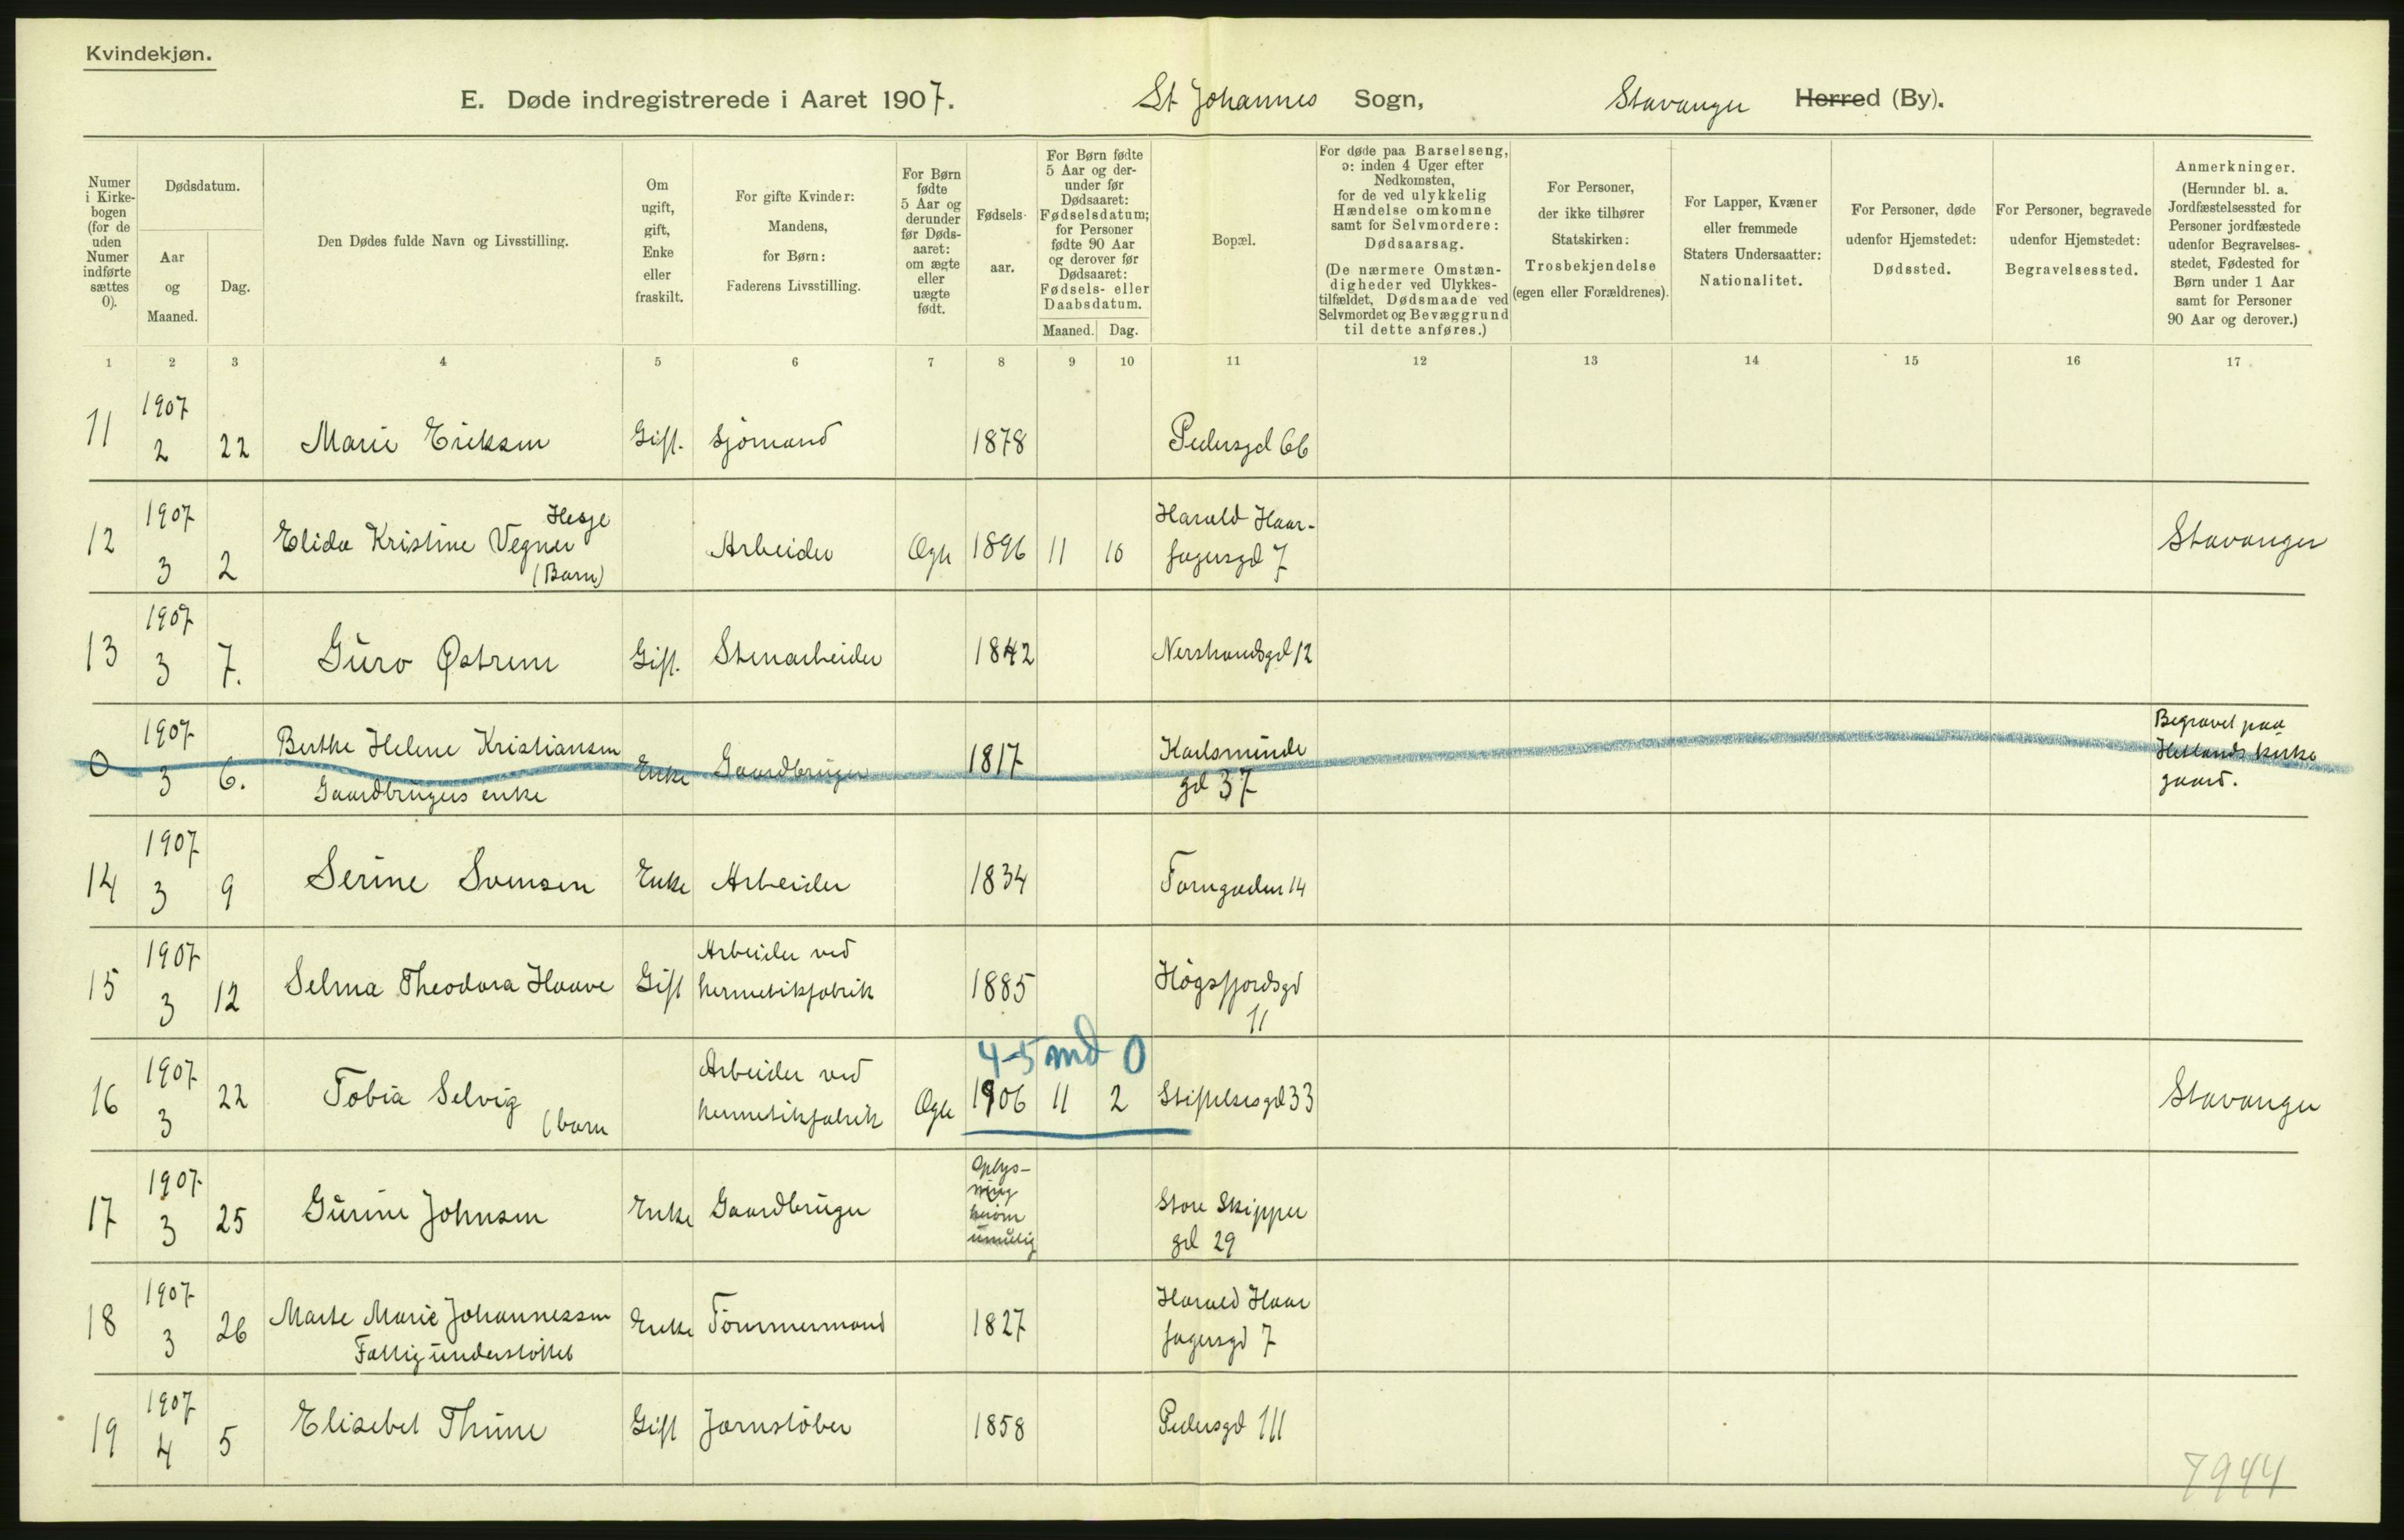 Kvindekjøn.
E. Døde indregistrerede i Aaret 1907. St Johannes Sogn, Stavanger Herred (By).
Numer i Kirkebogen (for de uden Numer indførte sættes 0).
Dødsdatum.
Aar og Maaned.
Dag.
Den Dødes fulde Navn og Livsstilling.
Om ugift, gift, Enke eller fraskilt.
For gifte Kvinder: Mandens, for Børn: Faderens Livsstilling.
For Børn fødte 5 Aar og derunder før Dødsaaret: om ægte eller uægte født.
Fødselsaar.
For Børn fødte 5 Aar og derunder før Dødsaaret: Fødselsdatum; for Personer fødte 90 Aar og derover før Dødsaaret: Fødsels- eller Daabsdatum.
Maaned. Dag.
Bopæl.
For døde paa Barselseng, ɔ: inden 4 Uger efter Nedkomsten, for de ved ulykkelig Hændelse omkomne samt for Selvmordere: Dødsaarsag.
(De nærmere Omstændigheder ved Ulykkestilfældet, Dødsmaade ved Selvmordet og Bevæggrund til dette anføres.)
For Personer, der ikke tilhører Statskirken: Trosbekjendelse (egen eller Forældrenes).
For Lapper, Kvæner eller fremmede Staters Undersaatter: Nationalitet.
For Personer, døde udenfor Hjemstedet: Dødssted.
For Personer, begravede udenfor Hjemstedet: Begravelsessted.
Anmerkninger.
(Herunder bl. a. Jordfæstelsessted for Personer jordfæstede udenfor Begravelsesstedet, Fødested for Børn under 1 Aar samt for Personer 90 Aar og derover.)
1 2 3 4 5 6 7 8 9 10 11 12 13 14 15 16 17
11 1907 2 22 Marie Eriksen Gift. Sjömand 1878 Pedersgd 66
12 1907 3 2 Elida Kristine Vegner Hesje (Barn) Arbeider Ægte 1896 11 10 Harald Haarfagersgd 7 Stavanger
13 1907 3 7. Guro Østrem Gift. Stenarbeider 1842 Nerstrandsgd 12
0 1907 3 6. Berthe Helene Kristiansen Gaardbrugers enke Enke Gaardbruger 1817 Karlsminde gd 37 Begravet paa Hetlands kirke gaard.
14 1907 3 9 Serine Svensen Enke Arbeider 1834 Torngaden 14
15 1907 3 12 Selma Theodora Haave Gift Arbeider ved hermetikfabrik 1885 Högsfjordsgd 11
4-5 md 0
16 1907 3 22 Tobia Selvig (barn Arbeider ved hermetikfabrik Ægte 1906 11 2 Stiftelsesgd 33 Stavanger
17 1907 3 25 Gurine Johnsen Enke Gaardbruger Oplysning herom umulig Store Skipper gd 29
18 1907 3 26 Marte Marie Johannessen Fattigunderstöttet Enke Tömmermand 1827 Harald Haar fagersgd 7
19 1907 4 5 Elisebet Thime Gift Jærnstöber 1858 Pedersgd 111
7944